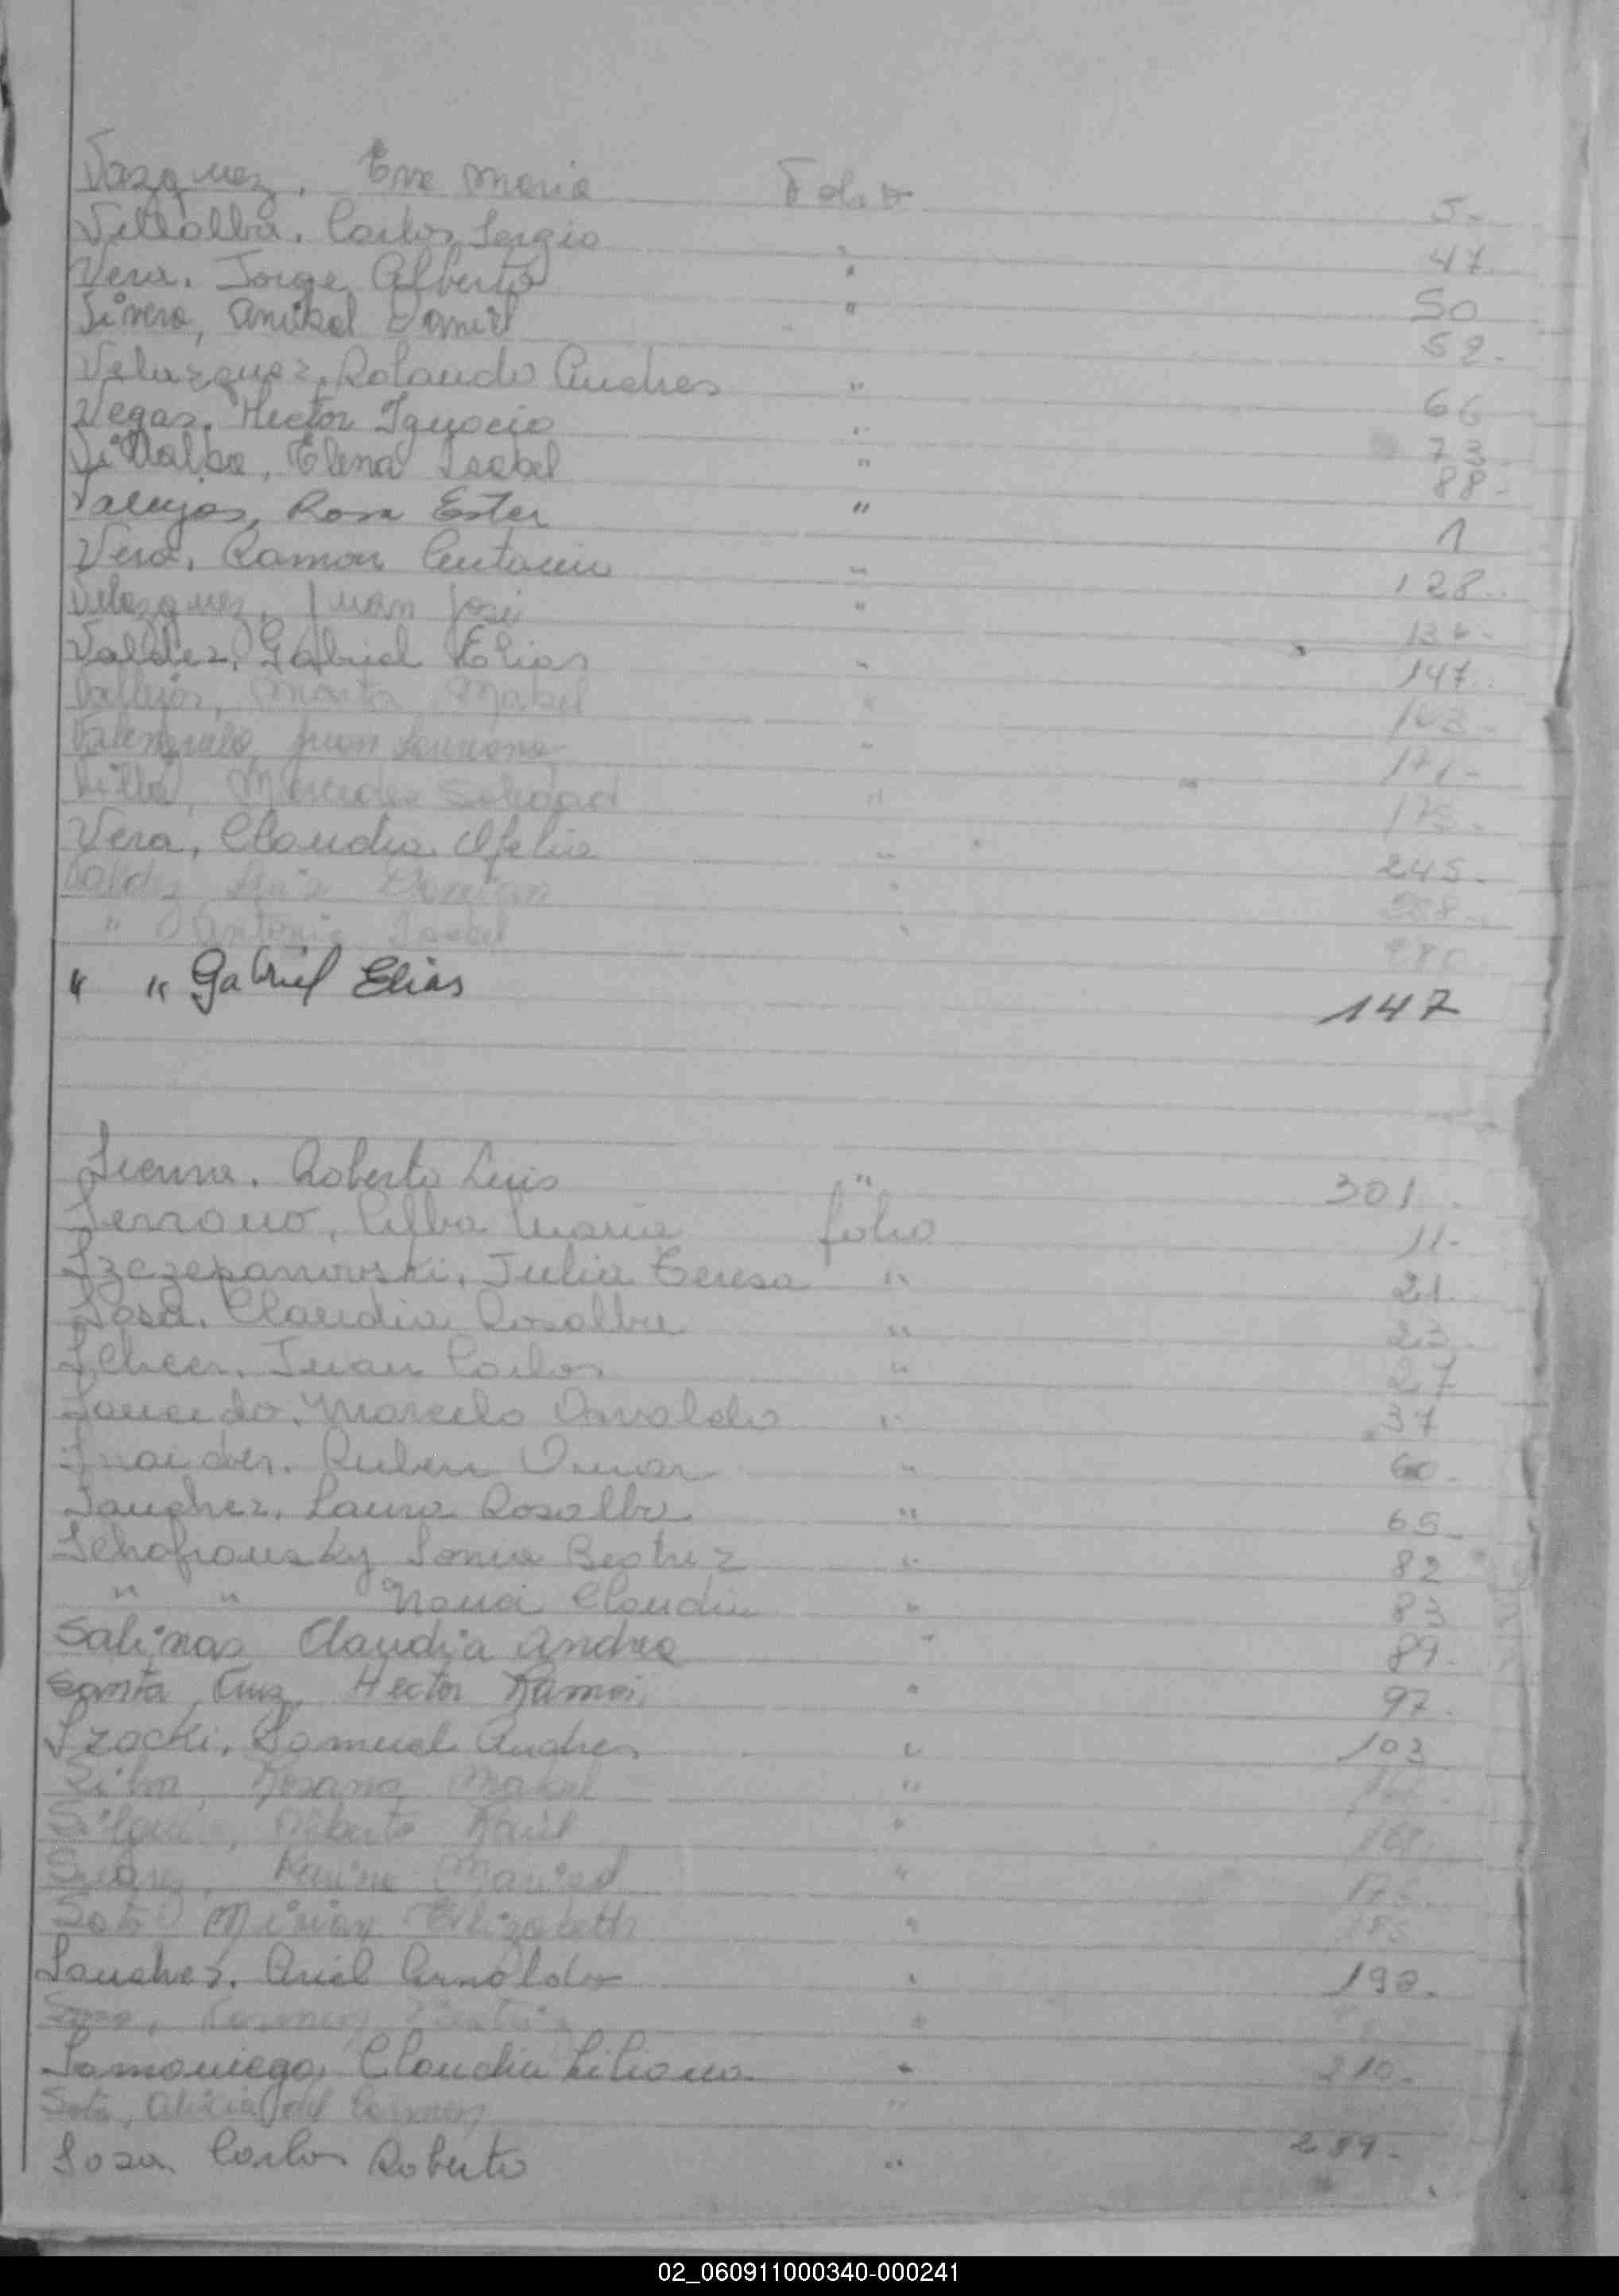 Vazquez, Eva Maria Folio 5-
Villalba, Carlos Sergio " 47
Vera, Jorge Alberto " 50
Vivero, Anibal Daniel " 52-
Velazquez, Rolando Andres " 66
Vegas, Hector Ignacio " 73
Villalba, Elena Isabel " 88-
Vallejos, Rosa Ester " 1
Vera, Ramon Antonio " 128
Velazquez, Juan José "
Valdez, Gabriel Elias " 147
Vallejos, Marta Mabel " 163-
Valenzuela, Juan " 171-
Villa, Mercedes Soledad " 175-
Vera, Claudia Ofelia " 245-
Valdez "
" Antonia Isabel "
" " Gabriel Elias 147
Sienna, Roberto Luis " 301
Serrano, Alba Maria folio 11-
Szczepanowski, Julia Teresa " 21
Sosa, Claudia Rosalba " 23
Juan Carlos " 27
Saucedo, Marcelo Osvaldo " 37
Snaider, Ruben Omar " 60-
Sanchez, Laura Rosalba " 65-
Schofrousky Sonia Beatriz " 82
" " Claudia " 83
Salinas Claudia Andrea " 89-
Santa Cruz, Hector Ramon " 97
Szocki, Samuel Andres " 103
Silva, Rosana Mabel "
Alberto Raúl "
Suarez, "
Soto Mirian Elizabeth "
Sanchez, Ariel Arnoldo " 192-
"
Samaniego, Claudia Liliana " 210-
Soto, Alicia del Carmen "
Sosa Carlos Roberto " 289-
02_060911000340-000241